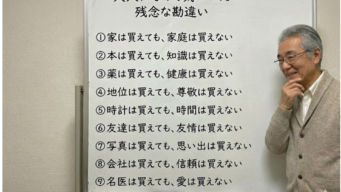 残念な勘違い
①家は買えても、家庭は買えない
②本は買えても、知識は買えない
③薬は買えても、健康は買えない
④地位は買えても、尊敬は買えない
⑤時計は買えても、時間は買えない
⑥友達は買えても、友情は買えない
⑦写真は買えても、思い出は買えない
⑧会社は買えても、信頼は買えない
⑨名医は買えても、愛は買えない